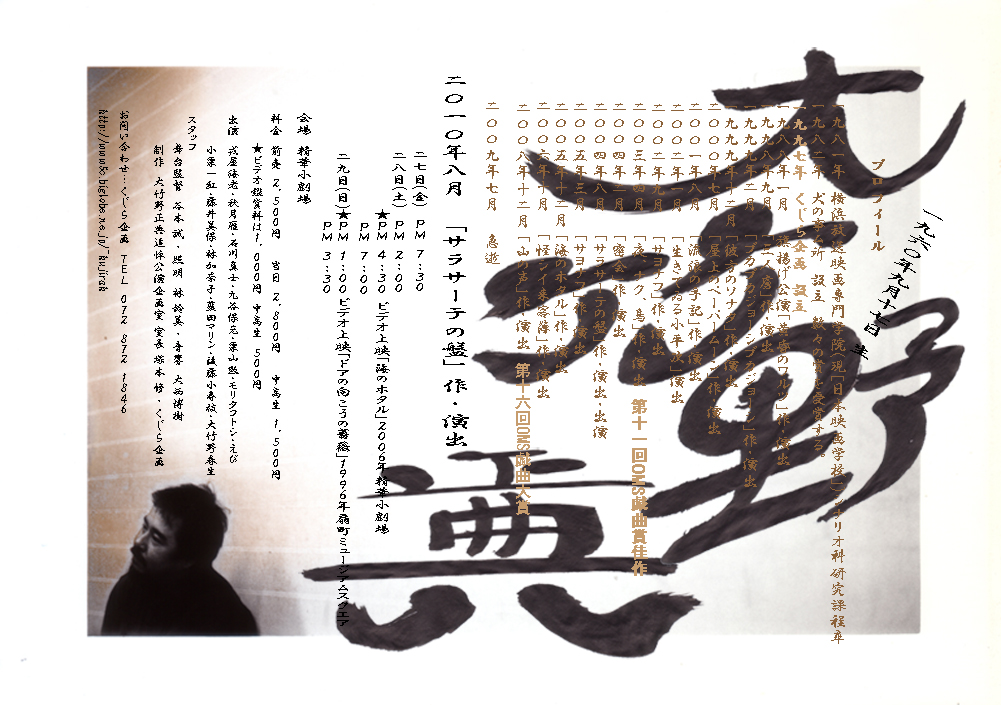 大竹野正典
一九六〇年九月十七日 生
プロフィール
一九八一年 横浜放送映画専門学院(現「日本映画学校」)シナリオ科研究課程卒
一九八二年 犬の事ム所 設立 数々の賞を受賞する。
一九九七年 くじら企画 設立
一九九八年一月 旗揚げ公演「黄昏のワルツ」作・演出
一九九八年九月
一九九九年七月 「ブカブカジョーシブカジョーシ」作・演出
一九九九年十二月 「彼方のソナタ」作・演出
二〇〇〇年七月 「屋上のペーパームーン」作・演出
二〇〇一年八月 「流浪の手記」作・演出
二〇〇二年一月 「生きてゐる小平次」演出
二〇〇二年九月 「サヨナフ」作・演出
二〇〇三年四月 「夜、ナク、鳥」作・演出 第十一回OMS戯曲賞佳作
二〇〇四年二月 「密会」作・演出
二〇〇四年八月 「サラサーテの盤」作・演出
二〇〇五年三月 「サヨナフ」作・演出
二〇〇五年十月 「海のホタル」作・演出
二〇〇六年十月 「怪シイ来客簿」作・演出
二〇〇八年十二月 「山の声」作・演出 第十六回OMS戯曲大賞
二〇〇九年七月 急逝
二〇一〇年八月 「サラサーテの盤」作・演出
二七日(金) PM 7:30
二八日(土) PM 2:00
★PM 4:30 ビデオ上映「海のホタル」2006年精華小劇場
PM 7:00
二九日(日) ★PM 1:00 ビデオ上映「ドアの向こうの薔薇」1996年扇町ミュージアムスクエア
PM 3:30
会場 精華小劇場
料金 前売 2,500円 当日 2,800円 中高生 1,500円
★ビデオ鑑賞料は1,000円 中高生 500円
出演 戎屋海老・秋月雁・石川真士・九谷保元・栗山勲・モリタフトシ・えび
小栗一紅・藤井美保・林加奈子・藍田マリン・後藤小寿枝・大竹野春生
スタッフ
舞台監督 谷本誠・照明 林鈴美・音響 大西博樹
制作 大竹野正典追悼公演企画室 室長 塚本修・くじら企画
お問い合わせ…くじら企画 TEL 072 872 1846
http://www5c.biglobe.ne.jp/~kujirak